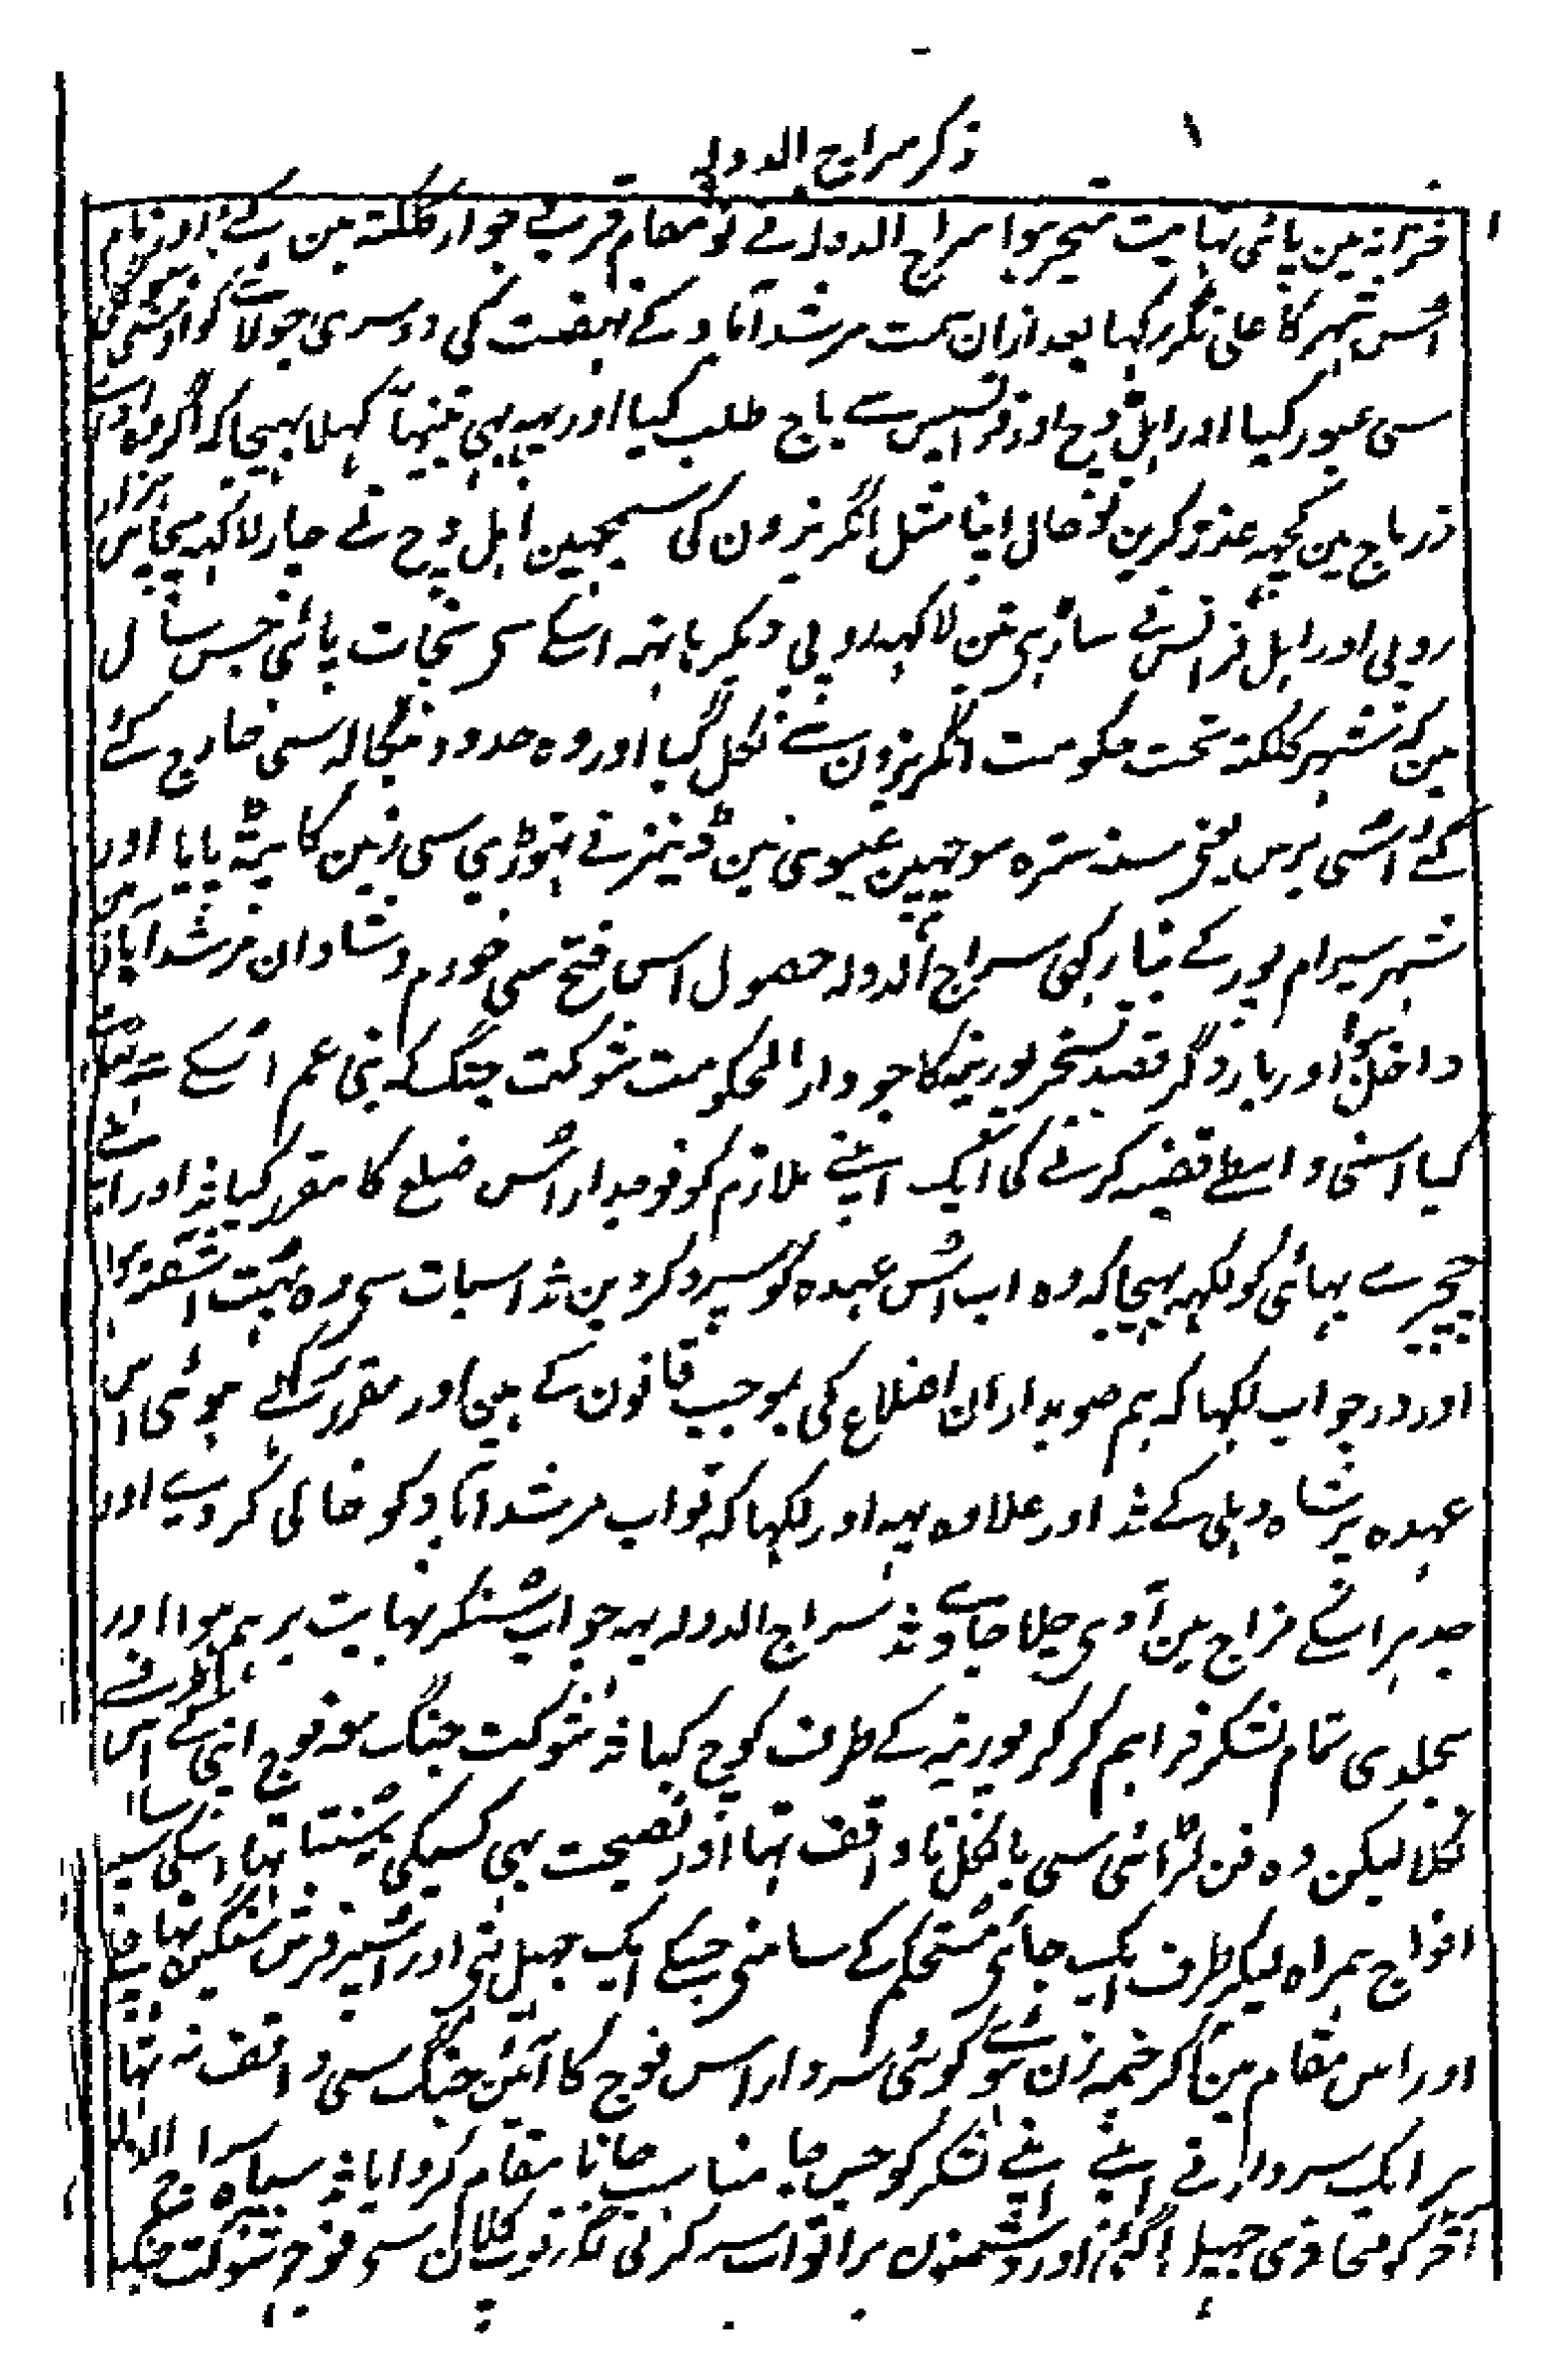 ذکر سراج الدولہ
خزانہ مین پائی نہایت متحیر ہوا سراج الدولہ نے نو مقام قرب جوار کلکتہ مین کئے اور نام
اُس شہر کا علی نگر رکہا بعد ازان سمت مرشدآباد کے نہضت کی دوسری جولائے کو اوسنی گنگا
سی عبور کیا اور اہل ڈچ اور فرانسیس سے باج طلب کیا اور یہہ بہی تنہاً کہلا بہیجا کہ اگر وہ ادائے
زر باج مین کچہہ عذر کرین تو حال اپنا مثل انگریزون کی سمجہین اہل ڈچ نے چار لاکہہ پچاس ہزار
روپی اور اہل فرانس نے ساڑہی تین لاکہہ روپی دیکر ہاتہہ اسکے سی نجات پائی جس سال
مین کہ شہر کلکتہ تحت حکومت انگریزون سے نکل گیا اور وہ حدود بنگالہ سی خارج کئے
گئے اُسی برس یعنی سنہ سترہ سو چہپن عیسوی مین ڈینمز نے تہوڑی سی زمین کا پٹہ پایا اور
شہر سیرام پور کے بنا رکہی سراج الدولہ حصول اس فتح سی خورم و شادان مرشدآباد مین
داخل ہوا اور بار دگر قصد تسخیر پورینہ کا جو دار الحکومت شوکت جنگ کہ بنی عم اُسکے سے تہا
کیا اسنی واسطے قضیہ کرنے کی ایک اپنے ملازم کو فوجدار اُس ضلع کا مقرر کیا اور اپنے
چچیرے بہائی کو لکہہ بہیجا کہ وہ اب اُس عہدہ کو سپرد کردین اسبات سی وہ بہت آشفتہ ہوا
اور در جواب لکہا کہ ہم صوبدار ان اضلاع کی بموجب قانون کے ہین اور مقرر کئے ہوئی اس
عہدہ پر شاہ دہلی کے اور علاوہ یہہ اور لکہا کہ نواب مرشدآباد کو خالی کر دیے اور
جدہر اسکے مزاج مین آوی چلا جاوے سراج الدولہ یہہ جواب سُنکر نہایت برہم ہوا اور
بجلدی تمام لشکر فراہم کر کر پورینہ کے طرف کوچ کیا شوکت جنگ معہ فوج اپنی کے اس طرف سے
نکلا لیکن وہ فن لڑائی سی بالکل ناواقف تہا اور نصیحت بہی کسیکی سُنتا تہا
افواج ہمراہ لیکر طرف ایک جائی مستحکم کے سامنی جسکے ایک جہیل تہی اور اسپر فرش سنگین تہا
اور اس مقام مین آکر خیمہ زن ہوئے کوئی سردار اس فوج کا آئین جنگ سی واقف نہ تہا
ہر ایک سردار نے اپنے اپنے لشکر کو جس جا مناسب جانا مقام کروایا سپاہ سراج الدولہ
آخر کو محاذی جہیل آگئی اور دشمنون پر اتواب سر کرنی لگی توپخانی سی فوج شوکت جنگ